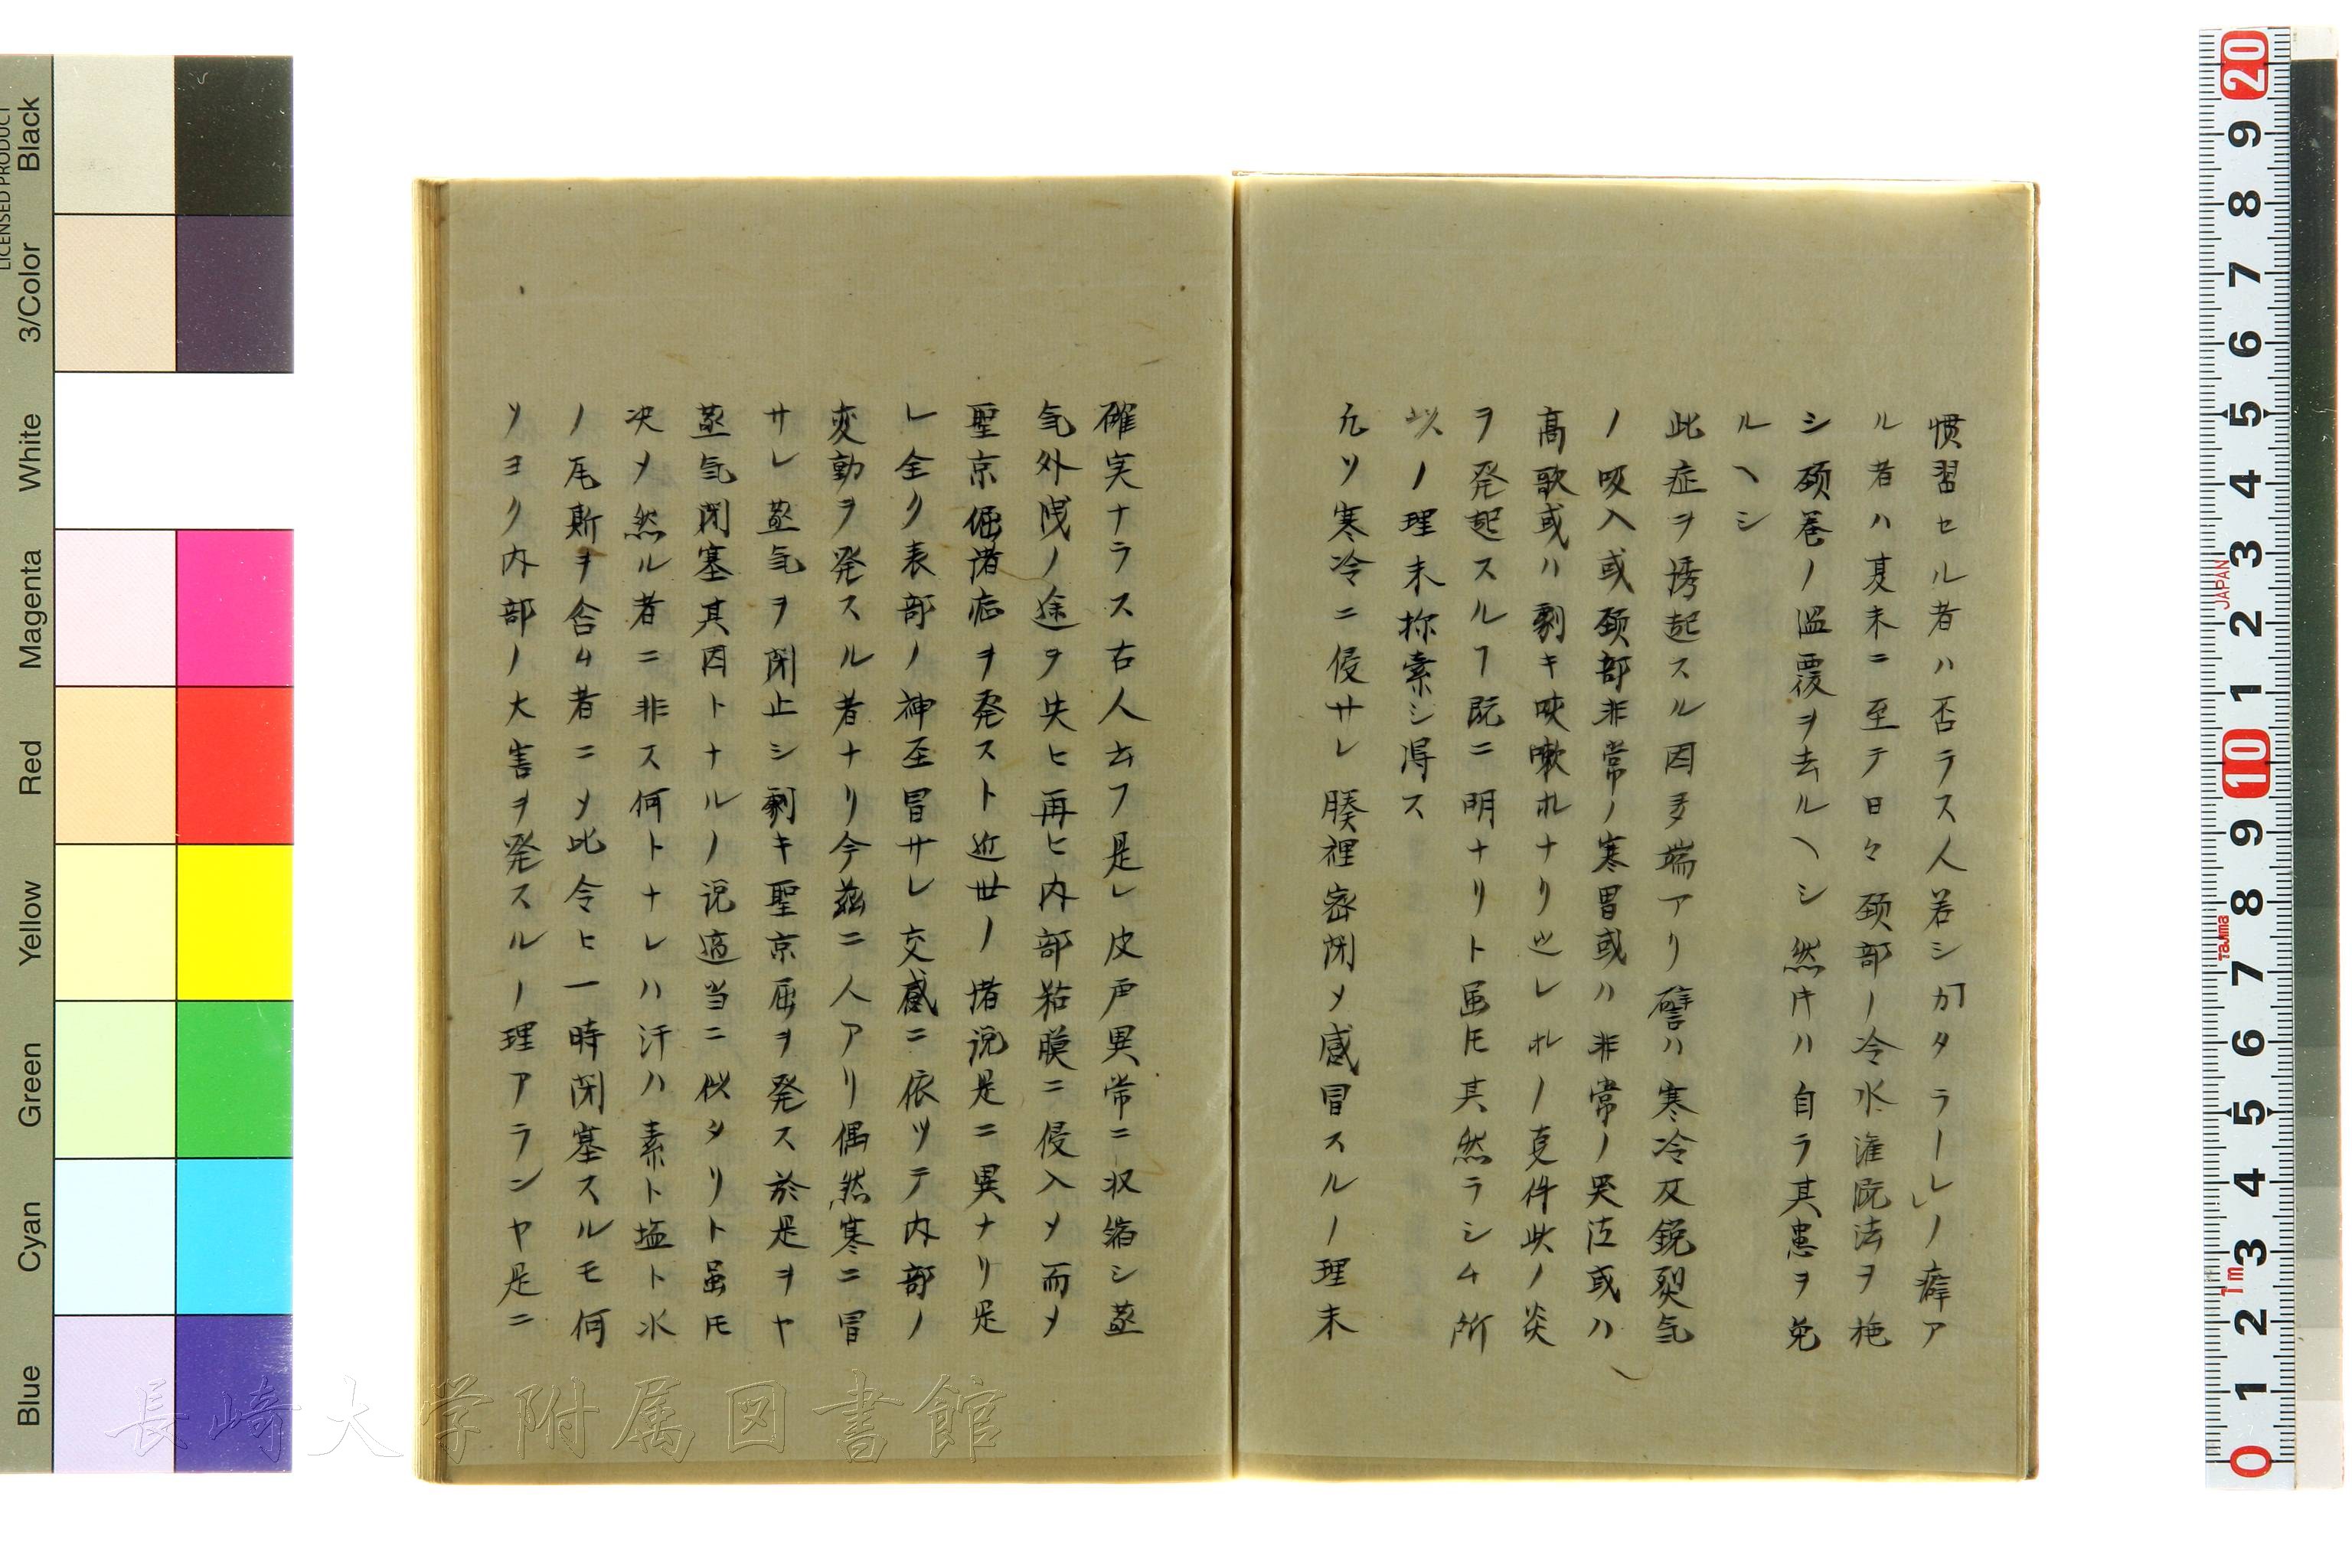 慣習セル者ハ否ラス人若シ「カタラーレ」ノ癖ア
ル者ハ夏末ニ至テ日々頚部ノ冷水潅漑法ヲ施
シ頚巻ノ温覆ヲ去ルヘシ然キハ自ラ其患ヲ免
ルヘシ
此症ヲ誘起スル因多端アリ譬ハ寒冷及鋭烈気
ノ吸入或頚部非常ノ寒冒或ハ非常ノ哭泣或ハ
高歌或ハ剰キ咳嗽ホレナリ此レホレノ夏件此ノ炎
ヲ発起スルヿ既ニ明ナリト虽𪜈其然ラシム所
以ノ理未捺索シ得ス
凡ソ寒冷ニ侵サレ腠裡密閉〆感冒スルノ理未
確実ナラス古人云フ是レ皮戸異常ニ収縮シ蒸
気外洩ノ途ヲ失ヒ再ヒ内部粘膜ニ侵入〆而〆
聖京倔諸症ヲ発スト近世ノ諸説是ニ異ナリ是
レ全ク表部ノ神至冒サレ交感ニ依ツテ内部ノ
変動ヲ発スル者ナリ今茲ニ人アリ偶然寒ニ冒
サレ蒸気ヲ閉止シ剰キ聖京屈ヲ発ス於是ヲヤ
蒸気閉塞其因トナルノ説適当ニ似タリト虽𪜈
决〆然ル者ニ非ス何トナレハ汗ハ素ト塩ト水
ノ瓦斯ヲ含ム者ニ〆比令ヒ一時閉塞スルモ何
ソヨク内部ノ大害ヲ発スルノ理アランヤ是ニ
長崎大学附属図書館
LICENSED PRODUCT
Black
3/Color
White
Magenta
Red
Yellow
Green
Cyan
Blue
20
9
8
7
6
5
4
3
2
1
10
9
8
7
6
5
4
3
2
1
0
JAPAN
Tajima
1m